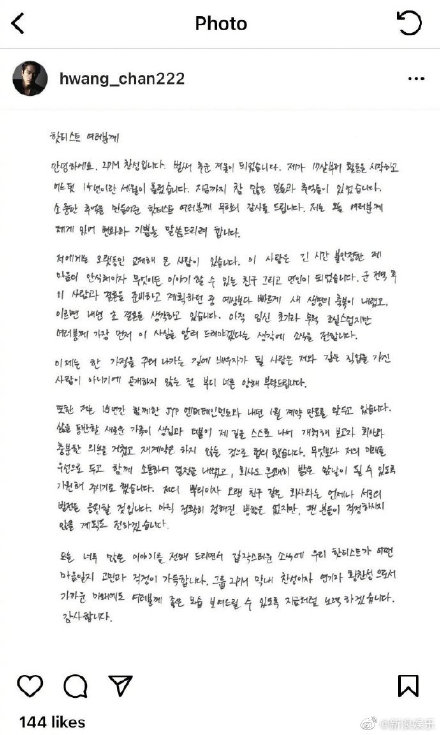 Photo
hwang_chan222
핫티스트 여러분께
안녕하세요. 2PM 찬성입니다. 벌써 추운 겨울이 되었습니다. 제가 17살부터 활동을 시작하고
어느덧 15년이란 세월이 흘렀습니다. 지금까지 참 많은 일들과 추억들이 있었습니다.
소중한 추억을 만들어준 핫티스트 여러분께 무한히 감사를 드립니다. 저는 오늘 여러분께
제게 있어 변화와 기쁨을 말씀드리려 합니다.
저에게는 오랫동안 교제해 온 사람이 있습니다. 이 사람은 긴 시간 불안정한 제
마음의 안식처이자 무엇이든 이야기 할 수 있는 친구 그리고 연인이 되었습니다. 군 전역 후
이 사람과 결혼을 준비하고 계획하던 중 예상보다 빠르게 새 생명의 축복이 내렸고,
이르면 내년 초 결혼을 생각하고 있습니다. 아직 임신 초기라 무척 조심스럽지만
여러분께 가장 먼저 이 사실을 알려 드려야겠다는 생각에 소식을 전합니다.
이제는 한 가정을 꾸려 나가는 길에 배우자가 될 사람은 저와 같은 직업을 가진
사람이 아니기에 공개하지 않는 점 부디 너른 양해 부탁드립니다.
또한 저는 15년간 함께한 JYP 엔터테인먼트와 내년 1월 계약 만료를 앞두고 있습니다.
삶을 동반할 새로운 가족이 생김과 더불어 제 길을 스스로 나서 개척해 보고자 회사와
충분한 의논을 거쳤고 재계약은 하지 않는 것으로 협의 했습니다. 무엇보다 저의 미래를
우선으로 두고 함께 소통하여 결정을 내렸고, 회사도 은퇴히 밝은 앞날이 될 수 있도록
기원해 주시기로 했습니다. 저의 뿌리이자 오랜 친구 같은 회사와는 언제나 서로의
발전을 응원할 것입니다. 아직 정확히 정해진 방향은 없지만, 팬 분들이 걱정하시지
않을 계획도 전하겠습니다.
오늘 너무 많은 이야기를 전해 드리면서 갑작스러운 소식에 우리 핫티스트가 어떤
마음일지 고민과 걱정이 가득합니다. 그룹 2PM 막내 찬성이자 연기자 황찬성으로서
가까운 미래에도 여러분께 좋은 모습 보여드릴 수 있도록 지금처럼 노력하겠습니다.
감사합니다.
144 likes